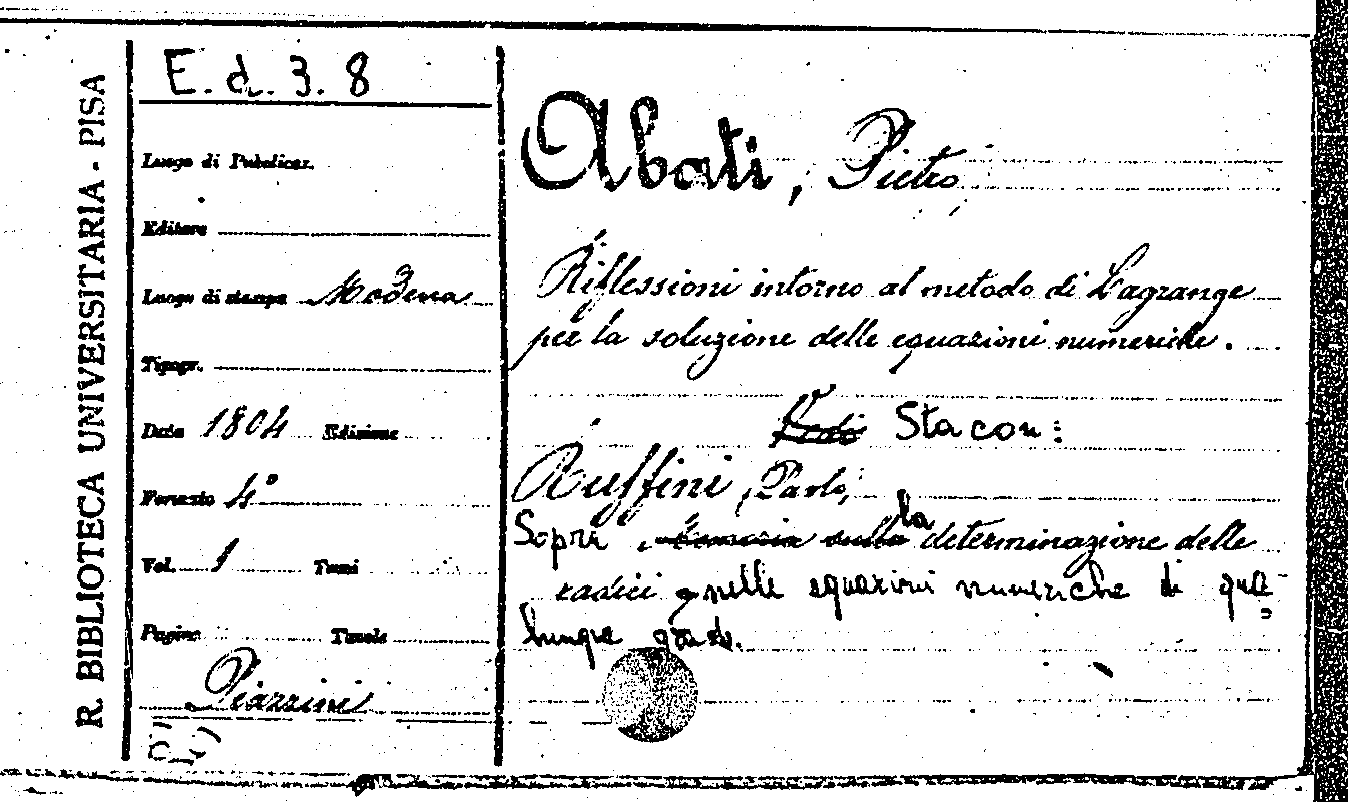 R. BIBLIOTECA UNIVERSITARIA - PISA
E. d. 3. 8
Luogo di Pubblicaz.
Editore
Luogo di stampa Modena
Tipogr.
Data 1804 Edizione
Formato 4°
Vol. 1 Tomi
Pagine Tavole
Piazzini
Abati, Pietro
Riflessioni intorno al metodo di Lagrange
per la soluzione delle equazioni numeriche.
Vedi Sta con:
Ruffini, Paolo,
Sopra la determinazione delle
radici nelle equazioni numeriche di qua-
lunque grado.